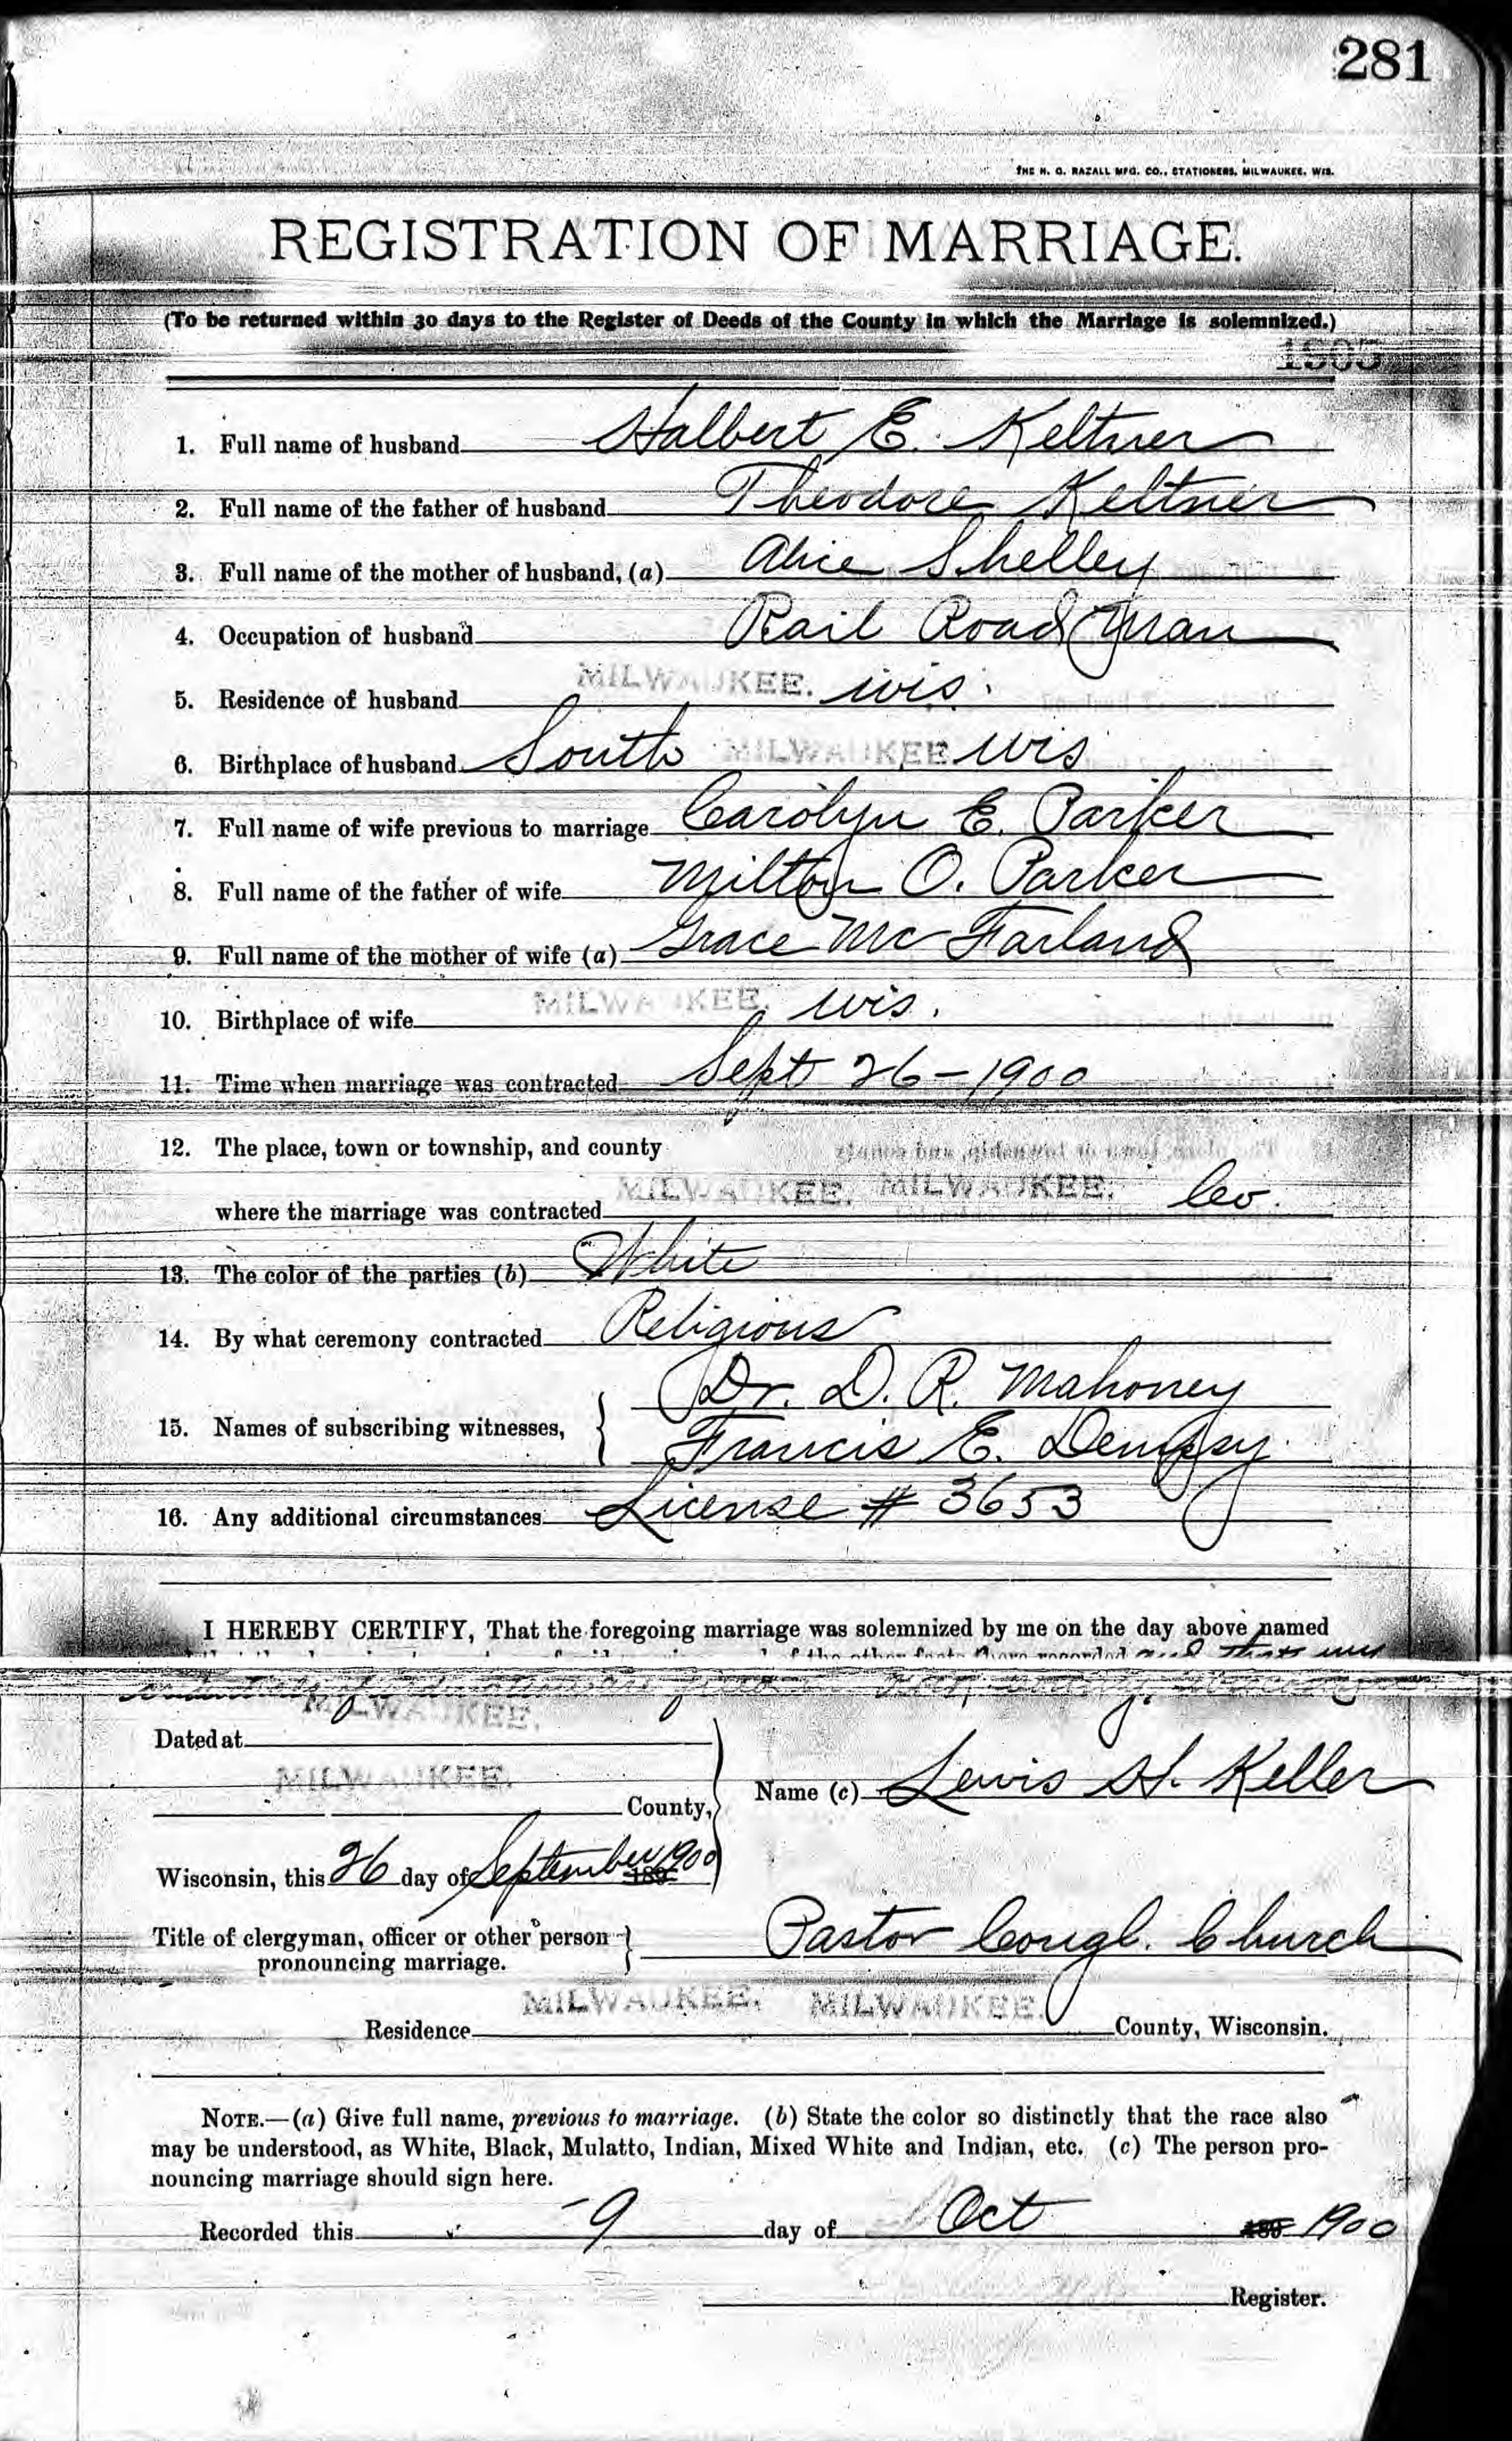 281
THE H. G. RAZALL MFG. CO., STATIONERS, MILWAUKEE, WIS.
REGISTRATION OF MARRIAGE.
(To be returned within 30 days to the Register of Deeds of the County in which the Marriage is solemnized.)
1905
1. Full name of husband Halbert E. Keltner
2. Full name of the father of husband Theodore Keltner
3. Full name of the mother of husband, (a) Alice Shelley
4. Occupation of husband Rail Road Man
5. Residence of husband MILWAUKEE. Wis.
6. Birthplace of husband South MILWAUKEE Wis
7. Full name of wife previous to marriage Carolyn E. Parker
8. Full name of the father of wife Milton O. Parker
9. Full name of the mother of wife (a) Grace Mc Farland
10. Birthplace of wife MILWAUKEE. Wis.
11. Time when marriage was contracted Sept 26-1900
12. The place, town or township, and county
where the marriage was contracted MILWAUKEE. MILWAUKEE. Co.
13. The color of the parties (b) White
14. By what ceremony contracted Religious
Dr. D. R. Mahoney
15. Names of subscribing witnesses,
Francis E. Dempsy
16. Any additional circumstances License # 3653
I HEREBY CERTIFY, That the foregoing marriage was solemnized by me on the day above named
of the other facts there recorded and that my
MILWAUKEE.
Dated at
MILWAUKEE. County,
Name (c) Lewis H. Keller
Wisconsin, this 26 day of September 189 1900
Title of clergyman, officer or other person Pastor Congl. Church
pronouncing marriage.
Residence MILWAUKEE. MILWAUKEE. County, Wisconsin.
NOTE.—(a) Give full name, previous to marriage. (b) State the color so distinctly that the race also
may be understood, as White, Black, Mulatto, Indian, Mixed White and Indian, etc. (c) The person pro-
nouncing marriage should sign here.
Recorded this 9 day of Oct 189 1900
Register.